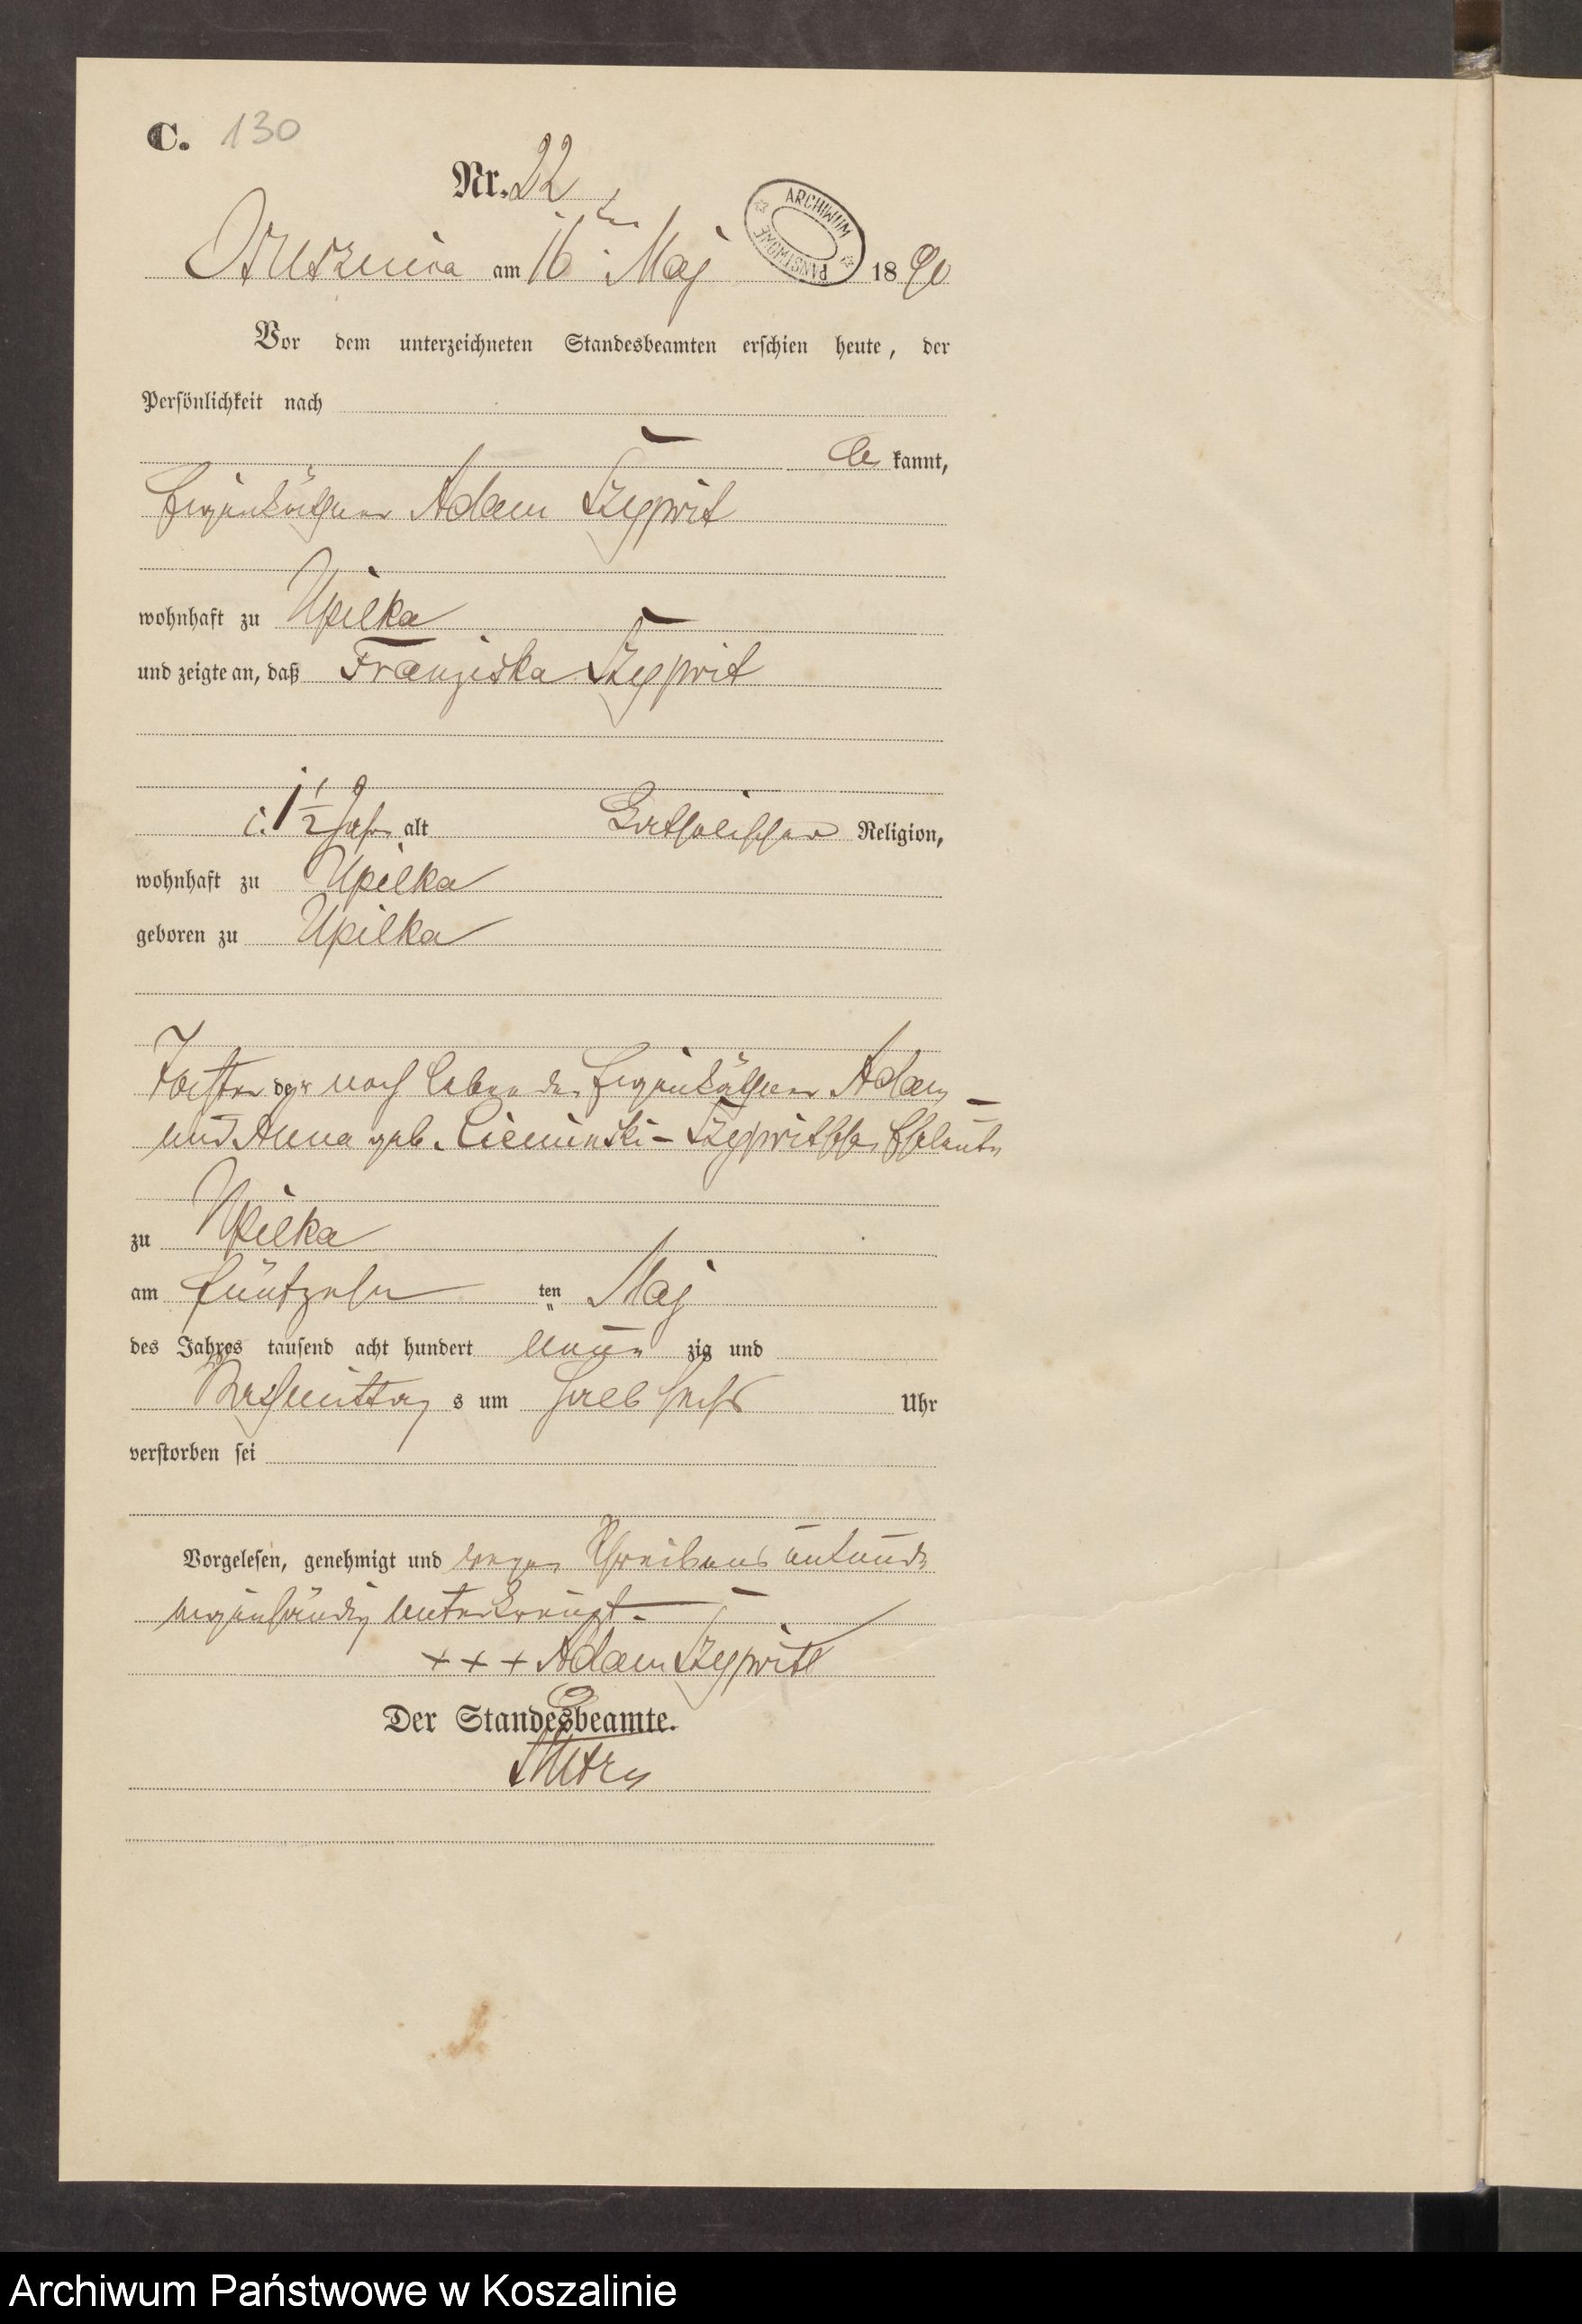 C. 130
Nr. 22
ARCHIWUM PAŃSTWOWE
am 16ten Maj 1890
Vor dem unterzeichneten Standesbeamten erschien heute, der
Persönlichkeit nach
be kannt,
Eigenkäthner Adam
wohnhaft zu Upilka
und zeigte an, daß Franziska
1 1/2 Jahr alt Katholischer Religion,
wohnhaft zu Upilka
geboren zu Upilka
Tochter der noch lebenden Eigenkäthner Adam
und Anna geb. Cieminski- Eheleute
zu Upilka
am fünfzehn ten Maj
des Jahres tausend acht hundert neun zig und
Nachmittag s um halb sechs Uhr
verstorben sei
Vorgelesen, genehmigt und wegen Schreibens unkunde
eigenhändig unterkreuzt.
+ + + Adam
Der Standesbeamte.
Archiwum Państwowe w Koszalinie